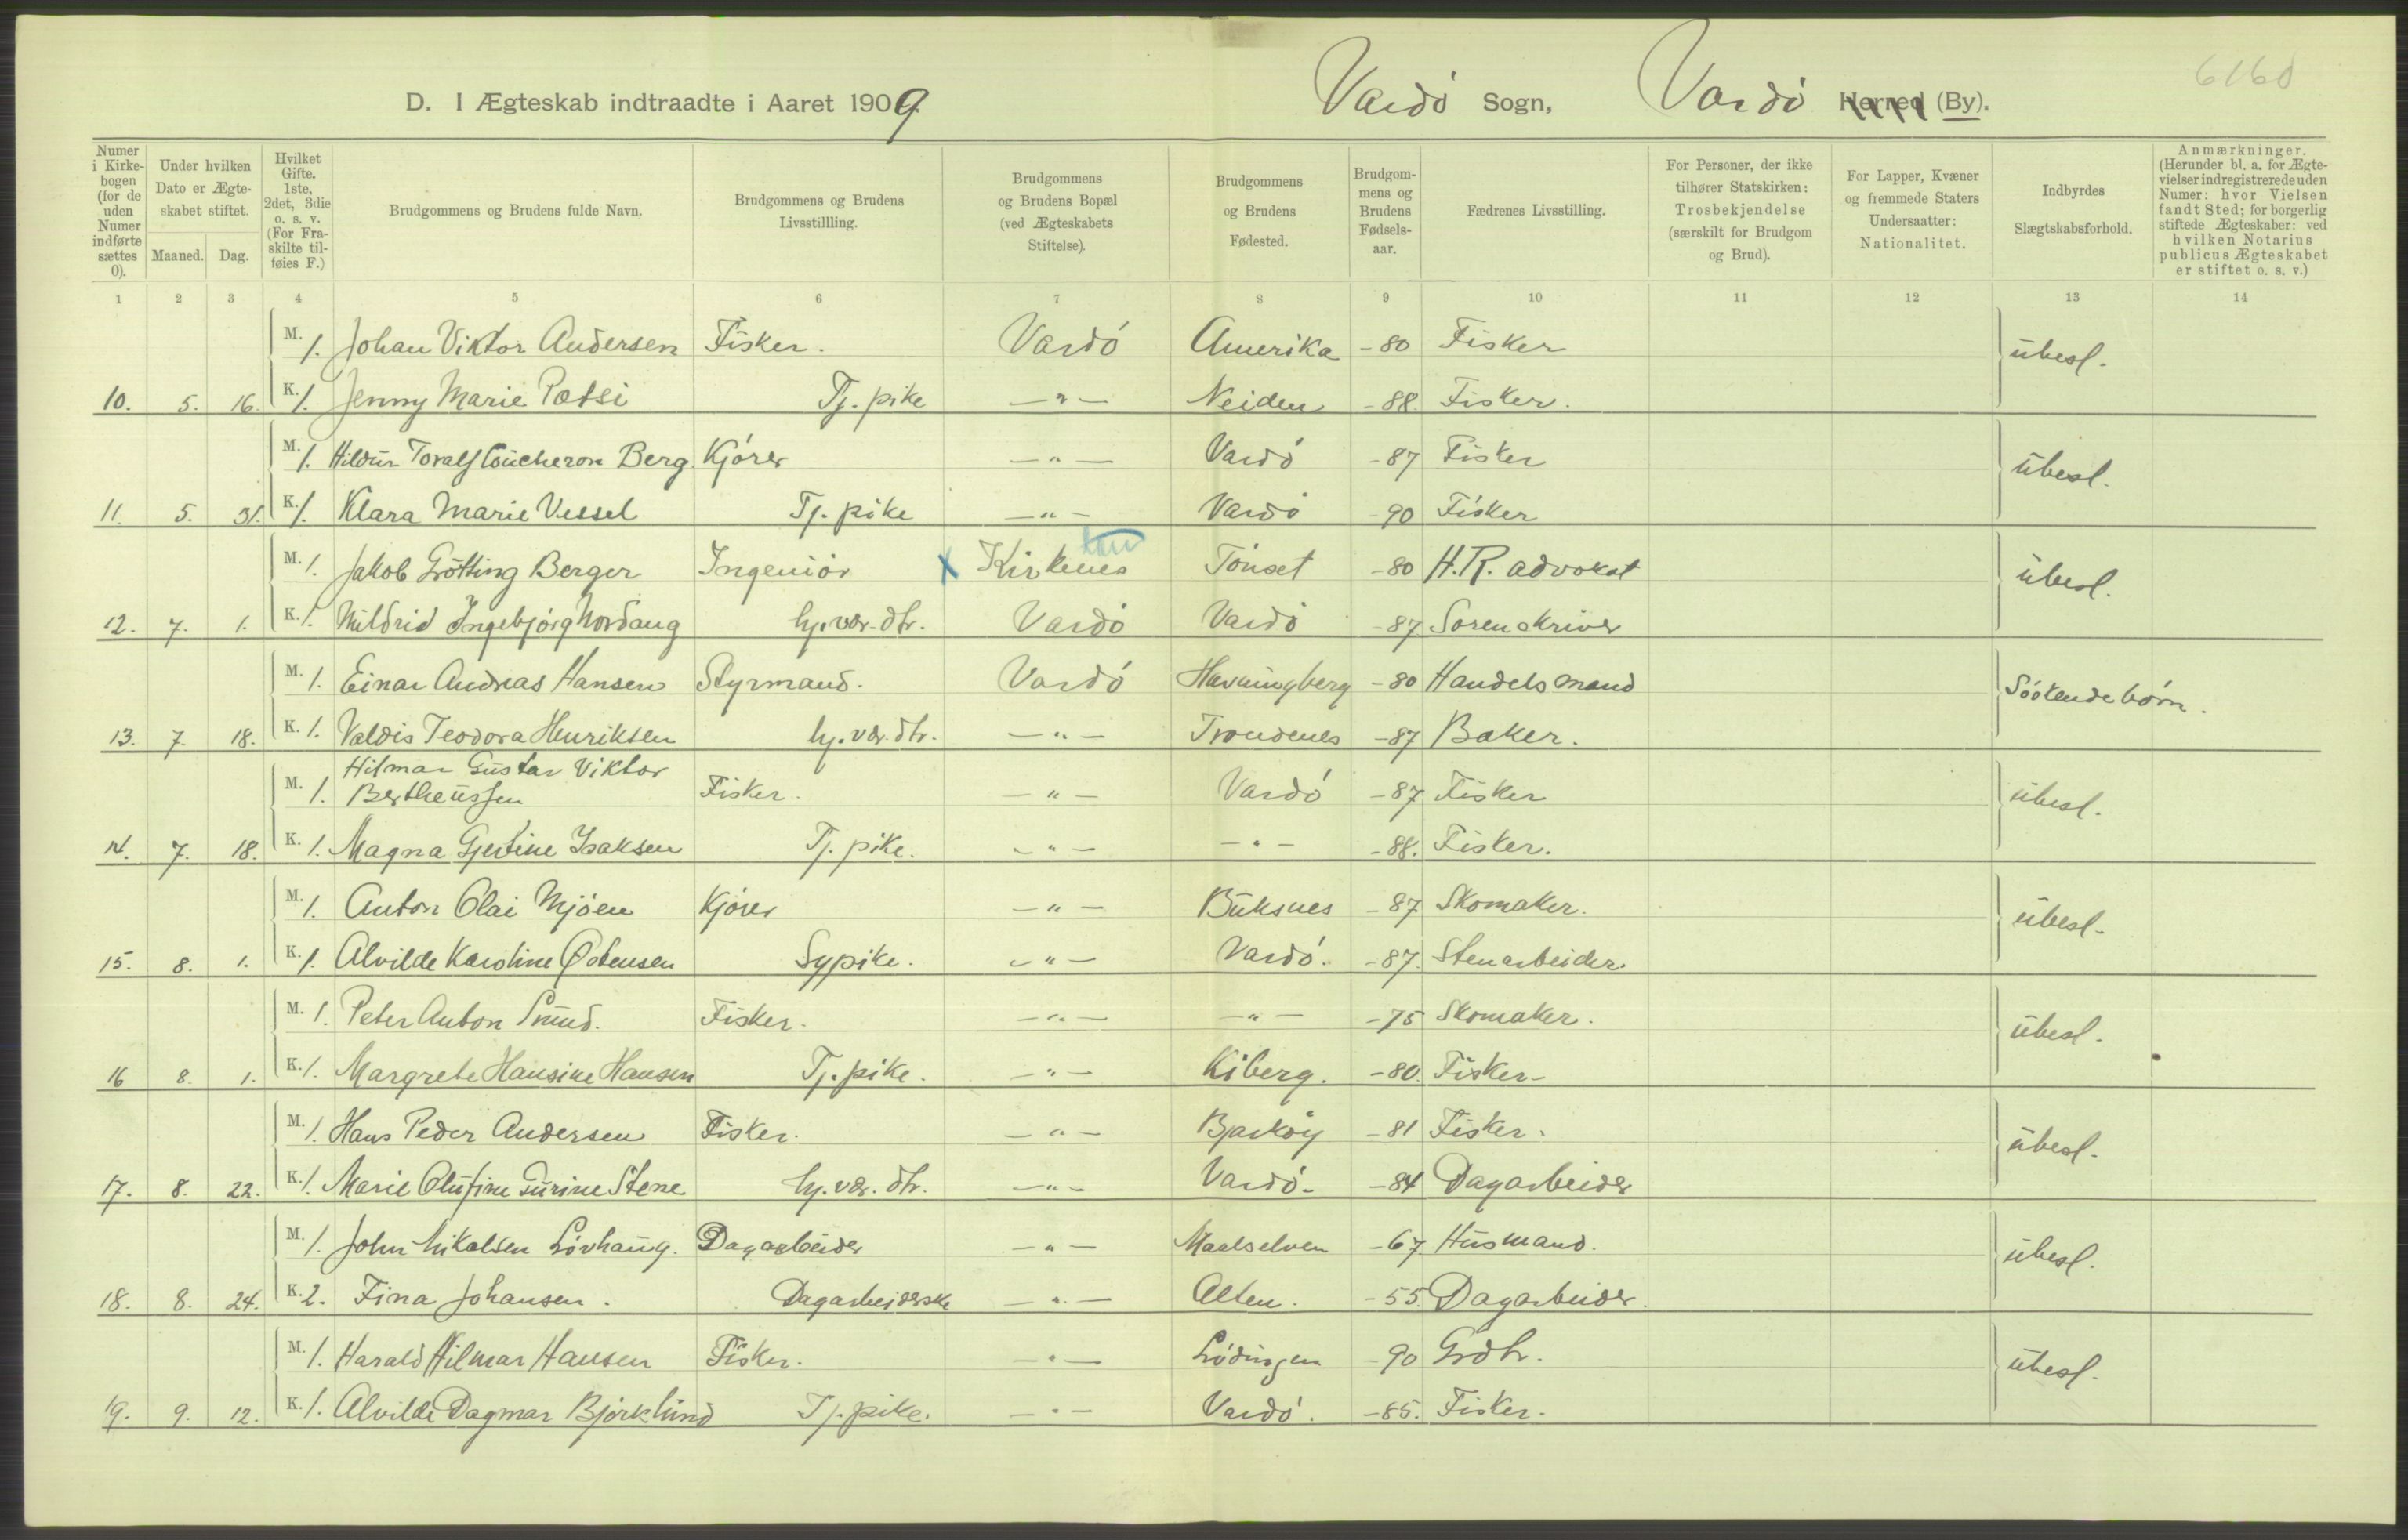 6160
D. I Ægteskab indtraadte i Aaret 1909. Vardó Sogn, Vardó Herred (By).
Numer i Kirkebogen (for de uden Numer indførte sættes 0). Under hvilken Dato er Ægteskabet stiftet. Maaned. Dag. Hvilket Gifte. 1ste, 2det, 3die o. s. v. (For Fraskilte tilføies F.) Brudgommens og Brudens fulde Navn. Brudgommens og Brudens Livsstillling. Brudgommens og Brudens Bopæl (ved Ægteskabets Stiftelse). Brudgommens og Brudens Fødested. Brudgommens og Brudens Fødselsaar. Fædrenes Livsstilling. For Personer, der ikke tilhører Statskirken: Trosbekjendelse (særskilt for Brudgom og Brud). For Lapper, Kvæner og fremmede Staters Undersaatter: Nationalitet. Indbyrdes Slægtskabsforhold. Anmærkninger. (Herunder bl. a. for Ægtevielser indregistrerede uden Numer: hvor Vielsen fandt Sted; for borgerlig stiftede Ægteskaber: ved hvilken Notarius publicus Ægteskabet er stiftet o. s. v.)
1 2 3 4 5 6 7 8 9 10 11 12 13 14
M. 1. Johan Viktor Andersen Fisker. Vardó Amerika -80 Fisker ubesl.
10. 5. 16. K. 1. Jenny Marie Potsi Tj. pike — " — Neiden -88. Fisker.
M. 1. Hildur Toralf Coucheron Berg Kjórer — " — Vardó -87 Fisker ubesl.
11. 5. 31. K. 1. Klara Marie Vessel Tj. pike — " — Vardó -90 Fisker
M. 1. Jakob Grötting Berger Ingeniör x Kirkenes Tónset -80 H.R. advokat ubesl.
12. 7. 1. K. 1. Mildrid Ingebjörg Nordang hj. vær. dtr. Vardó Vardó -87 Sorenskriver
M. 1. Einar Andreas Hansen Styrmand. Vardó Havningberg -80 Handelsmand Sóskendebórn.
13. 7. 18. K. 1. Valdis Teodora Henriksen hj. vær. dtr. — " — Trondenes -87 Baker.
Hilmar Gustav Viktor
M. 1. Bertheussen Fisker. — " — Vardó -87 Fisker ubesl.
14. 7. 18. K. 1. Magna Gjertine Isaksen Tj. pike. — " — — " — -88. Fisker.
M. 1. Anton Olai Mjöen Kjórer — " — Buksnes -87 Skomaker. ubesl.
15. 8. 1. K. 1. Alvilde Karoline Østensen Sypike. — " — Vardó. -87. Stenarbeider.
M. 1. Peter Anton Sund. Fisker. — " — — " — -75 Skomaker. ubesl.
16 8. 1. K. 1. Margrete Hansine Hansen Tj. pike. — " — Kiberg. -80. Fisker-
M. 1. Hans Peder Andersen Fisker. — " — Bjarkóy -81 Fisker. ubesl.
17. 8. 22. K. 1. Marie Olufine Turine Stene hj. vær. dtr. — " — Vardó- -84 Dagarbeider
M. 1. John Nikolsen Lóvhaug. Dagarbeider — " — Maalselven -67 Husmand. ubesl.
18. 8. 24. K. 2. Fina Johansen. Dagarbeiderske — " — Alten. -55. Dagarbeider.
M. 1. Harald Hilmar Hansen Fisker. — " — Lódingen -90 Grdbr. ubesl.
19. 9. 12. K. 1. Alvilde Dagmar Björklund Tj. pike. — " — Vardó. -85. Fisker.